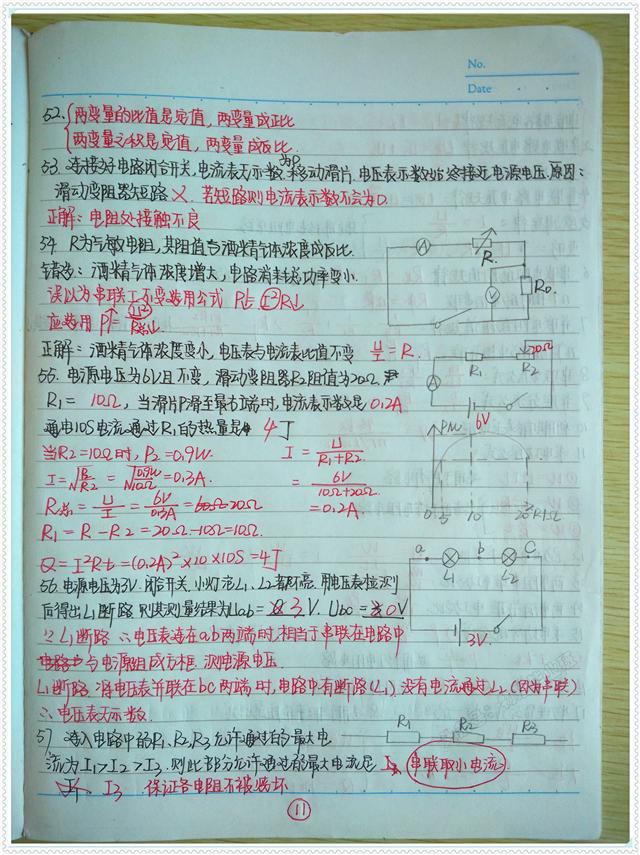 No.
Date
52. 两变量的比值是定值，两变量成正比
两变量之积是定值，两变量成反比.
53. 连接好电路闭合开关，电流表示数为0. 移动滑片. 电压表示数始终接近电源电压. 原因：
滑动变阻器短路 ×. 若短路则电流表示数不会为0.
正解：电阻处接触不良
54. R为气敏电阻，其阻值与酒精气体浓度成反比.
错选：酒精气体浓度增大，电路消耗总功率变小.
误以为串联I不变套用公式 P=I²R↓
应套用 P↑=U²/R总↓
正解：酒精气体浓度变小，电压表与电流表比值不变 U/I = R.
A R R0 V
55. 电源电压为6V且不变，滑动变阻器R2阻值为20Ω.
R1 = 10Ω，当滑片P滑至最右端时，电流表示数是 0.2A
通电10S电流通过R1的热量是 4J
当R2=10Ω时，P2=0.9W.
I=√P2/R2=√0.9W/10Ω=0.3A.
R总 = U/I = 6V/0.3A = 20Ω
R1=R-R2=20Ω-10Ω=10Ω.
Q=I²Rt=(0.2A)²×10×10S=4J
I = U/R1+R2
= 6V/10Ω+20Ω
= 0.2A.
A R1 R2 20Ω
6V
P/W
0 5 10 20 R/Ω
56. 电源电压为3V. 闭合开关. 小灯泡L1、L2都不亮. 用电压表检测
后得出L1断路. 则其测量结果为Uab = 3V. Ubc = 0V
∵L1断路 ∴电压表连在ab两端时，相当于串联在电路中
与电源组成方框. 测电源电压.
L1断路. 将电压表并联在bc两端时，电路中有断路(L1) 没有电流通过L2
∴电压表无示数.
a b c
L1 L2
3V
57. 连入电路中的R1、R2、R3允许通过的最大电
流为I1>I2>I3. 则此部分允许通过的最大电流是 (串联取小电流)
I3 保证各电阻不被烧坏
R1 R2 R3
11